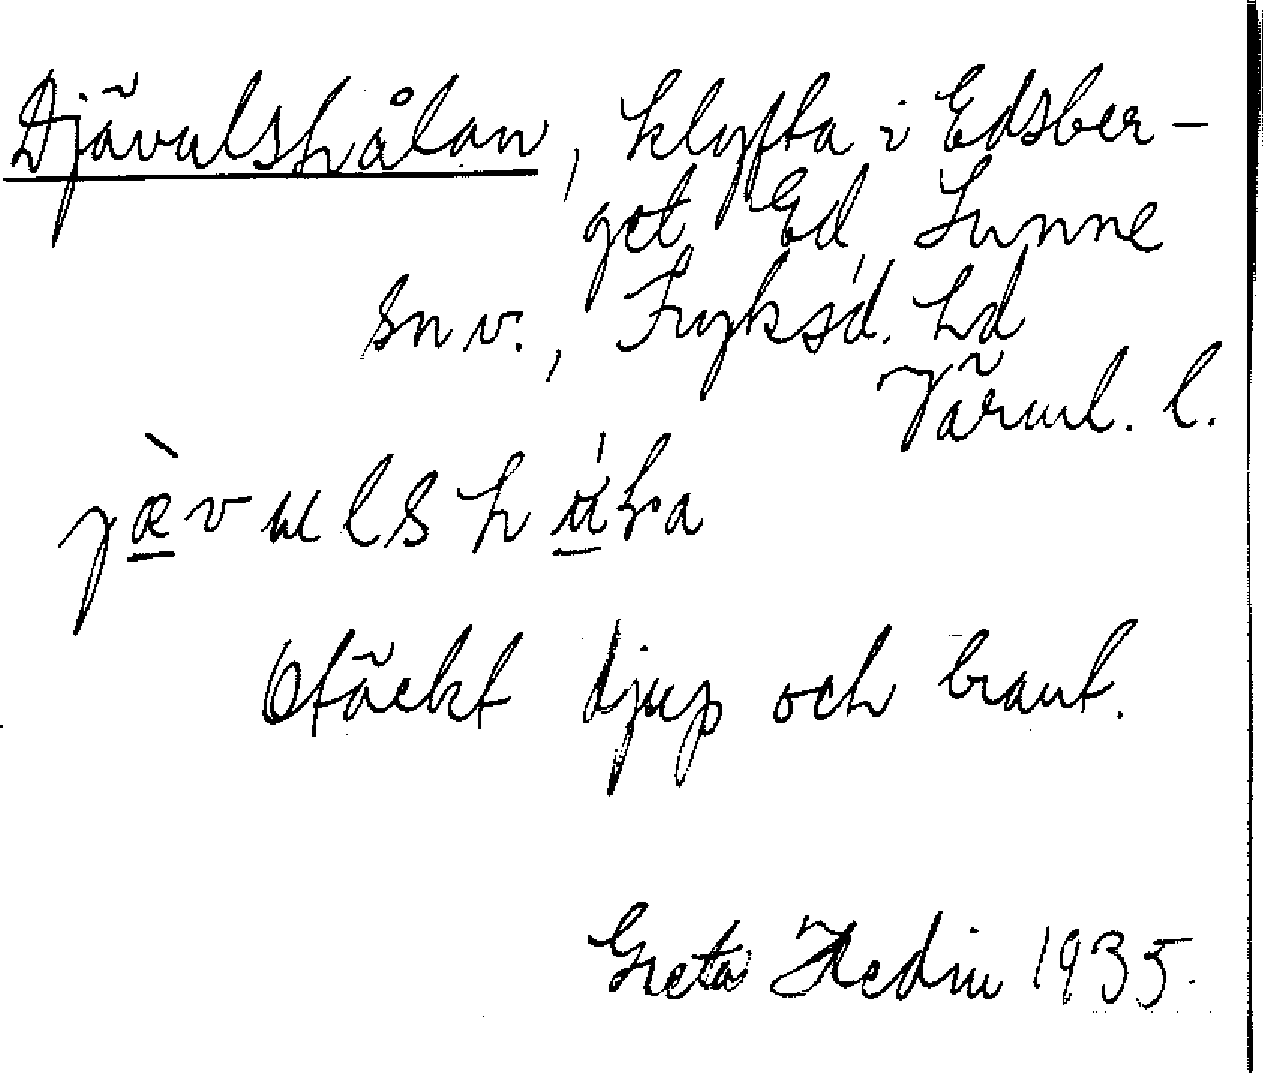 Djävulshålan, klyfta i Edsber-
get Ed, Sunne
sn v., Fryksd. hd
Värml. l.
jæ̀vulshála
Otäckt djup och brant.
Greta Hedin 1935.